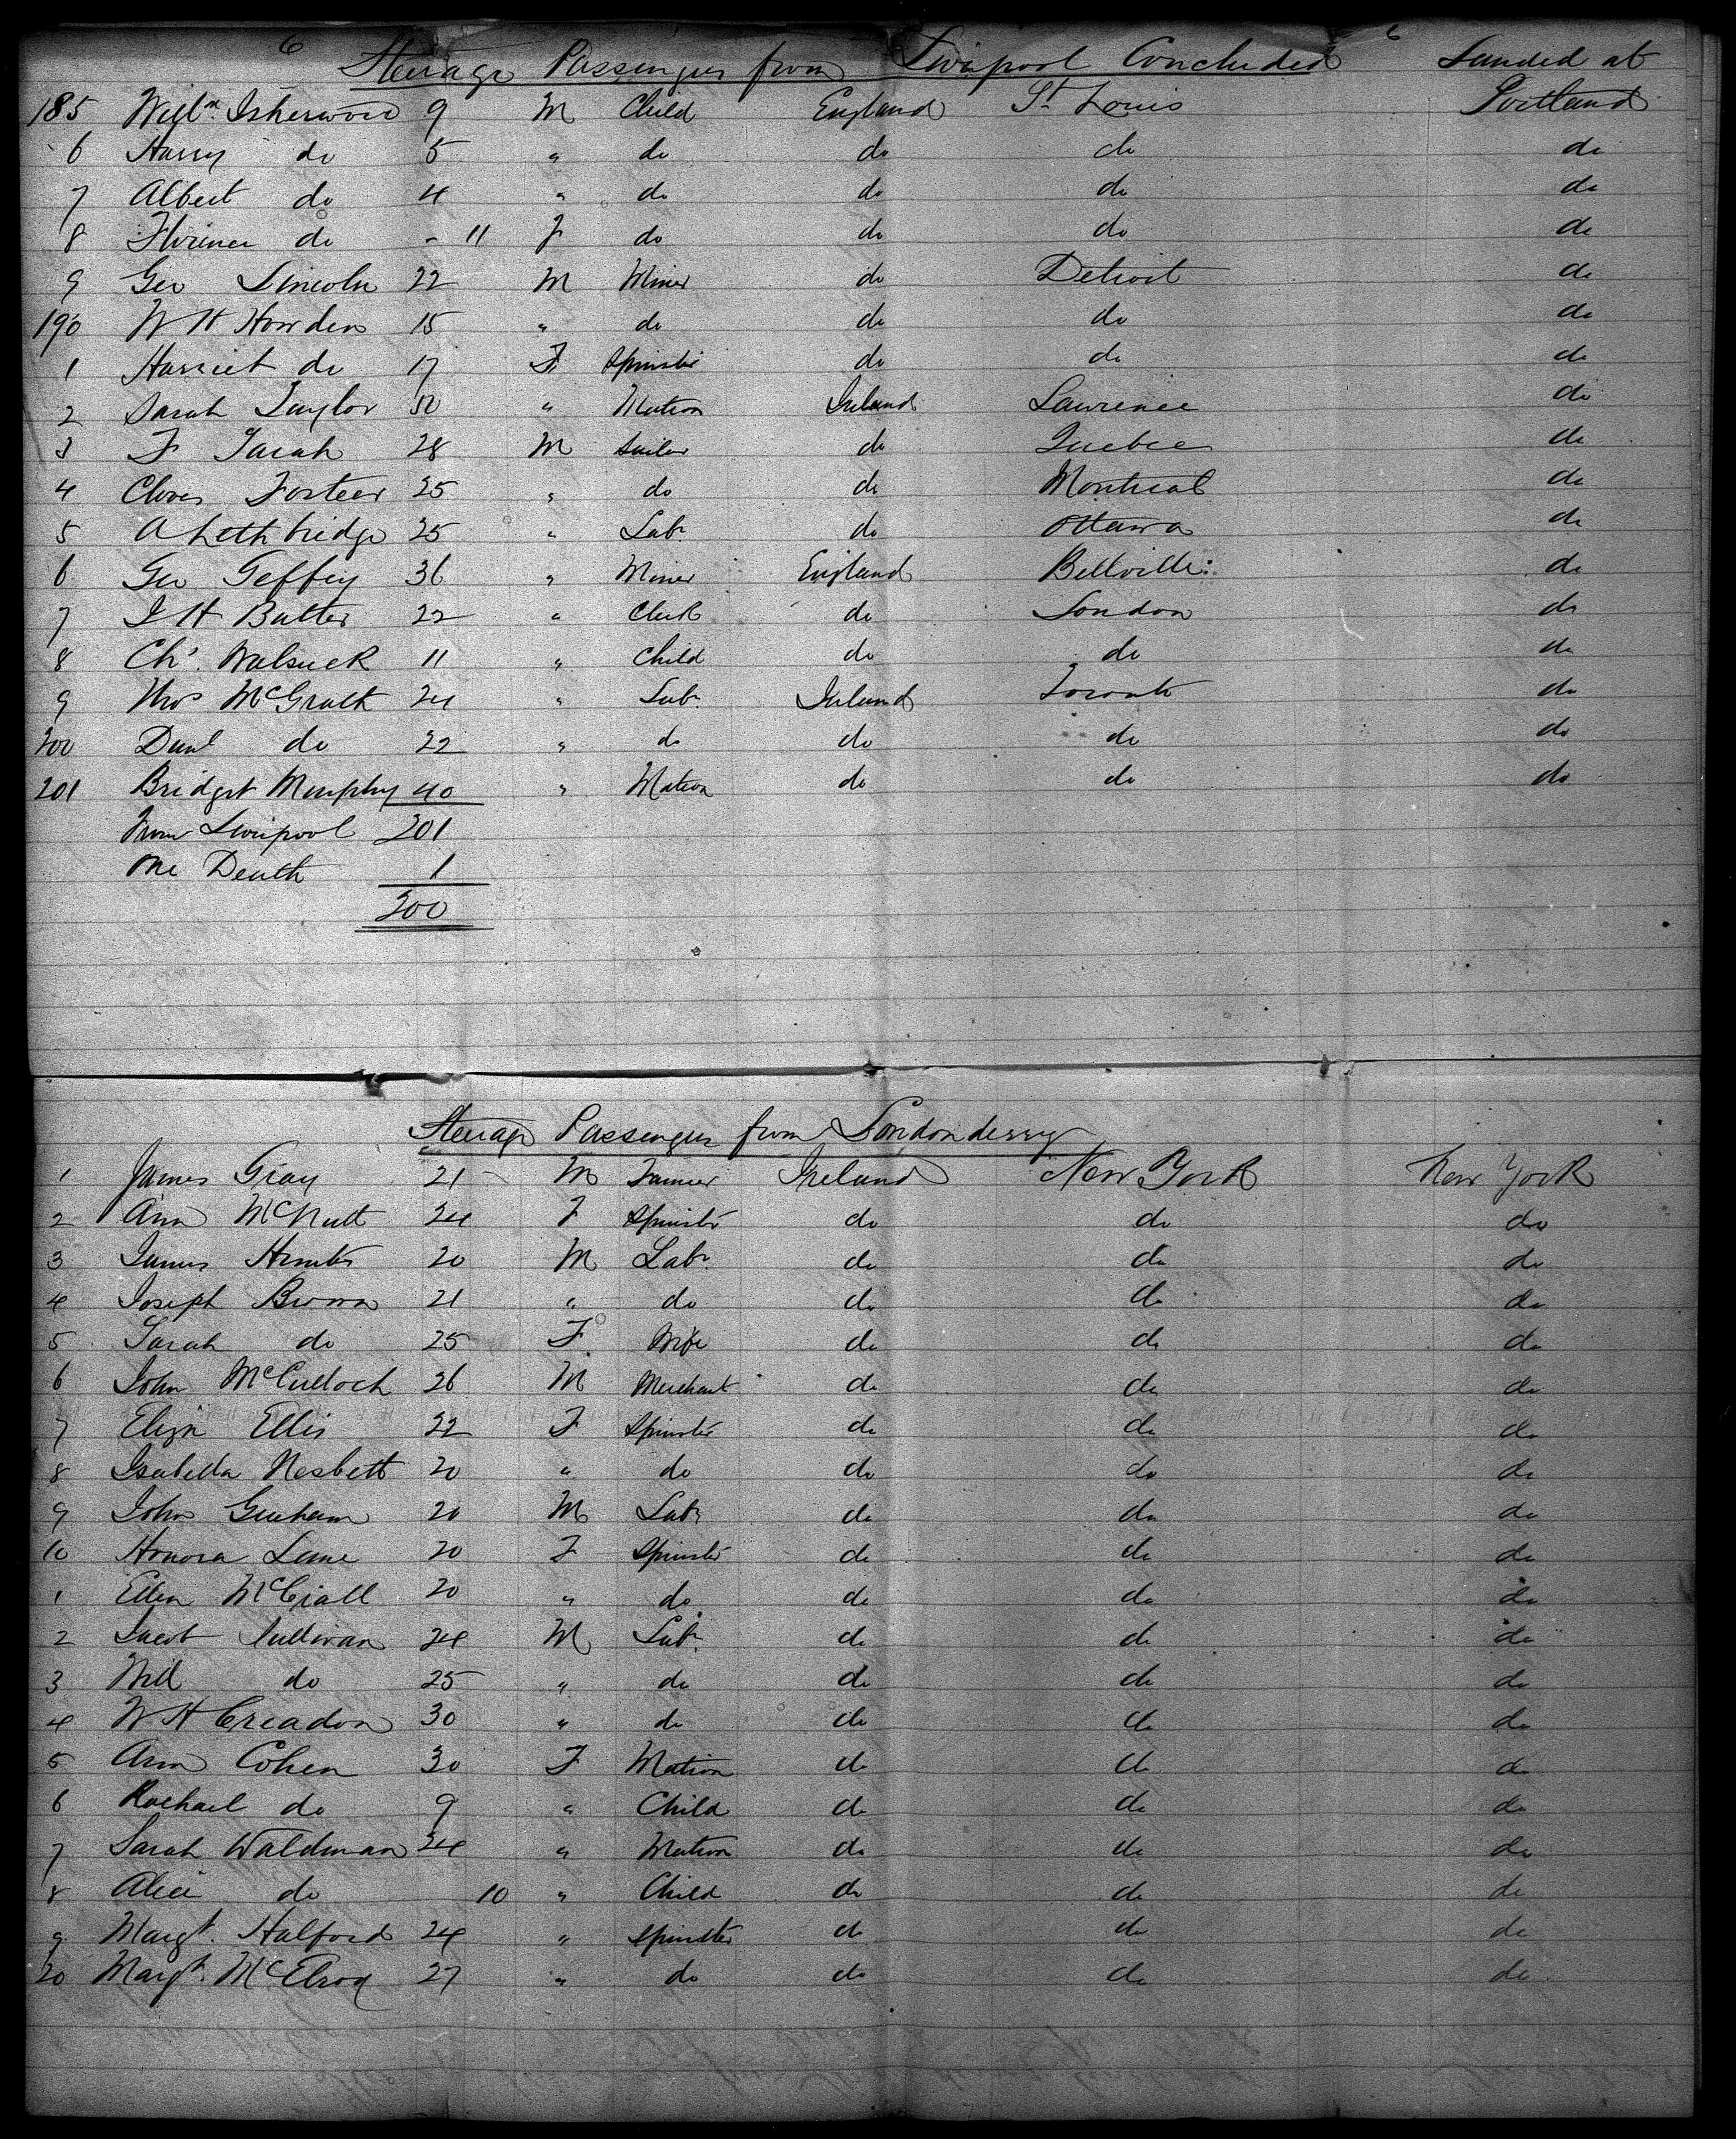 6 6
Steerage Passengers from Liverpool Concluded Landed at
185 Willm. Isherwood 9 M Child England St. Louis Portland
6 Harry do 5 " do do do do
7 Albert do 4 " do do do do
8 Florence do - 11 F do do do do
9 Geo Lincoln 22 M Miner do Detroit do
190 W H Howden 15 " do do do do
1 Harriet do 17 F Spinster do do do
2 Sarah Taylor 50 " Matron Ireland Lawrence do
3 F Jarah 28 M Sailor do Quebec do
4 Forteer 25 " do do Montreal do
5 A Lethbridge 25 " Labr. do Ottawa do
6 Geo Geffey 36 " Miner England Bellville do
7 J H Butter 22 " Clerk do London do
8 Chs. 11 " Child do do do
9 Thos McGrath 24 " Labr. Ireland Toronto do
200 Danl do 22 " do do do do
201 Bridget Murphy 40 " Matron do do do
From Liverpool 201
One Death 1
200
Steerage Passengers from Londonderry
1 James Gray 21 M Farmer Ireland New York New York
2 Ann McNutt 24 F Spinster do do do
3 James Hunter 20 M Labr. do do do
4 Joseph Brown 21 " do do do do
5 Sarah do 25 F Wife do do do
6 John McCulloch 26 M Merchant do do do
7 Eliza Ellis 22 F Spinster do do do
8 Isabella Nesbett 20 " do do do do
9 John Graham 20 M Labr do do do
10 Honora Lane 20 F Spinster do do do
1 Ellen McCrall 20 " do do do do
2 Jacob Sullivan 24 M Labr. do do do
3 Will do 25 " do do do do
4 W H Creadon 30 " do do do do
5 Ann Cohen 30 F Matron do do do
6 Rachael do 9 " Child do do do
7 Sarah Waldman 24 " Matron do do do
8 Alice do 10 " Child do do do
9 Margt. Halford 24 " Spinster do do do
20 Margt. McElroy 27 " do do do do